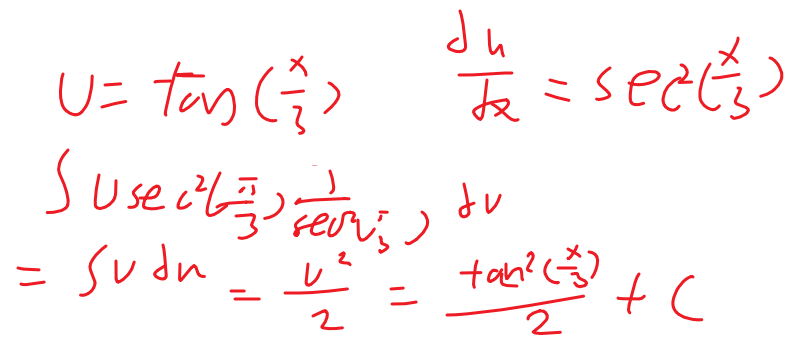 U = tan(x/3) du/dx = sec²(x/3)
∫ U sec²(π/3) 1/sec²(π/3) du
= ∫ u du = u²/2 = tan²(x/3)/2 + C